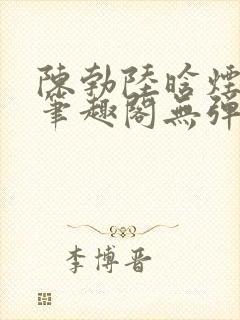 陳勃陸晗煙
筆趣閣無彈
李博晋